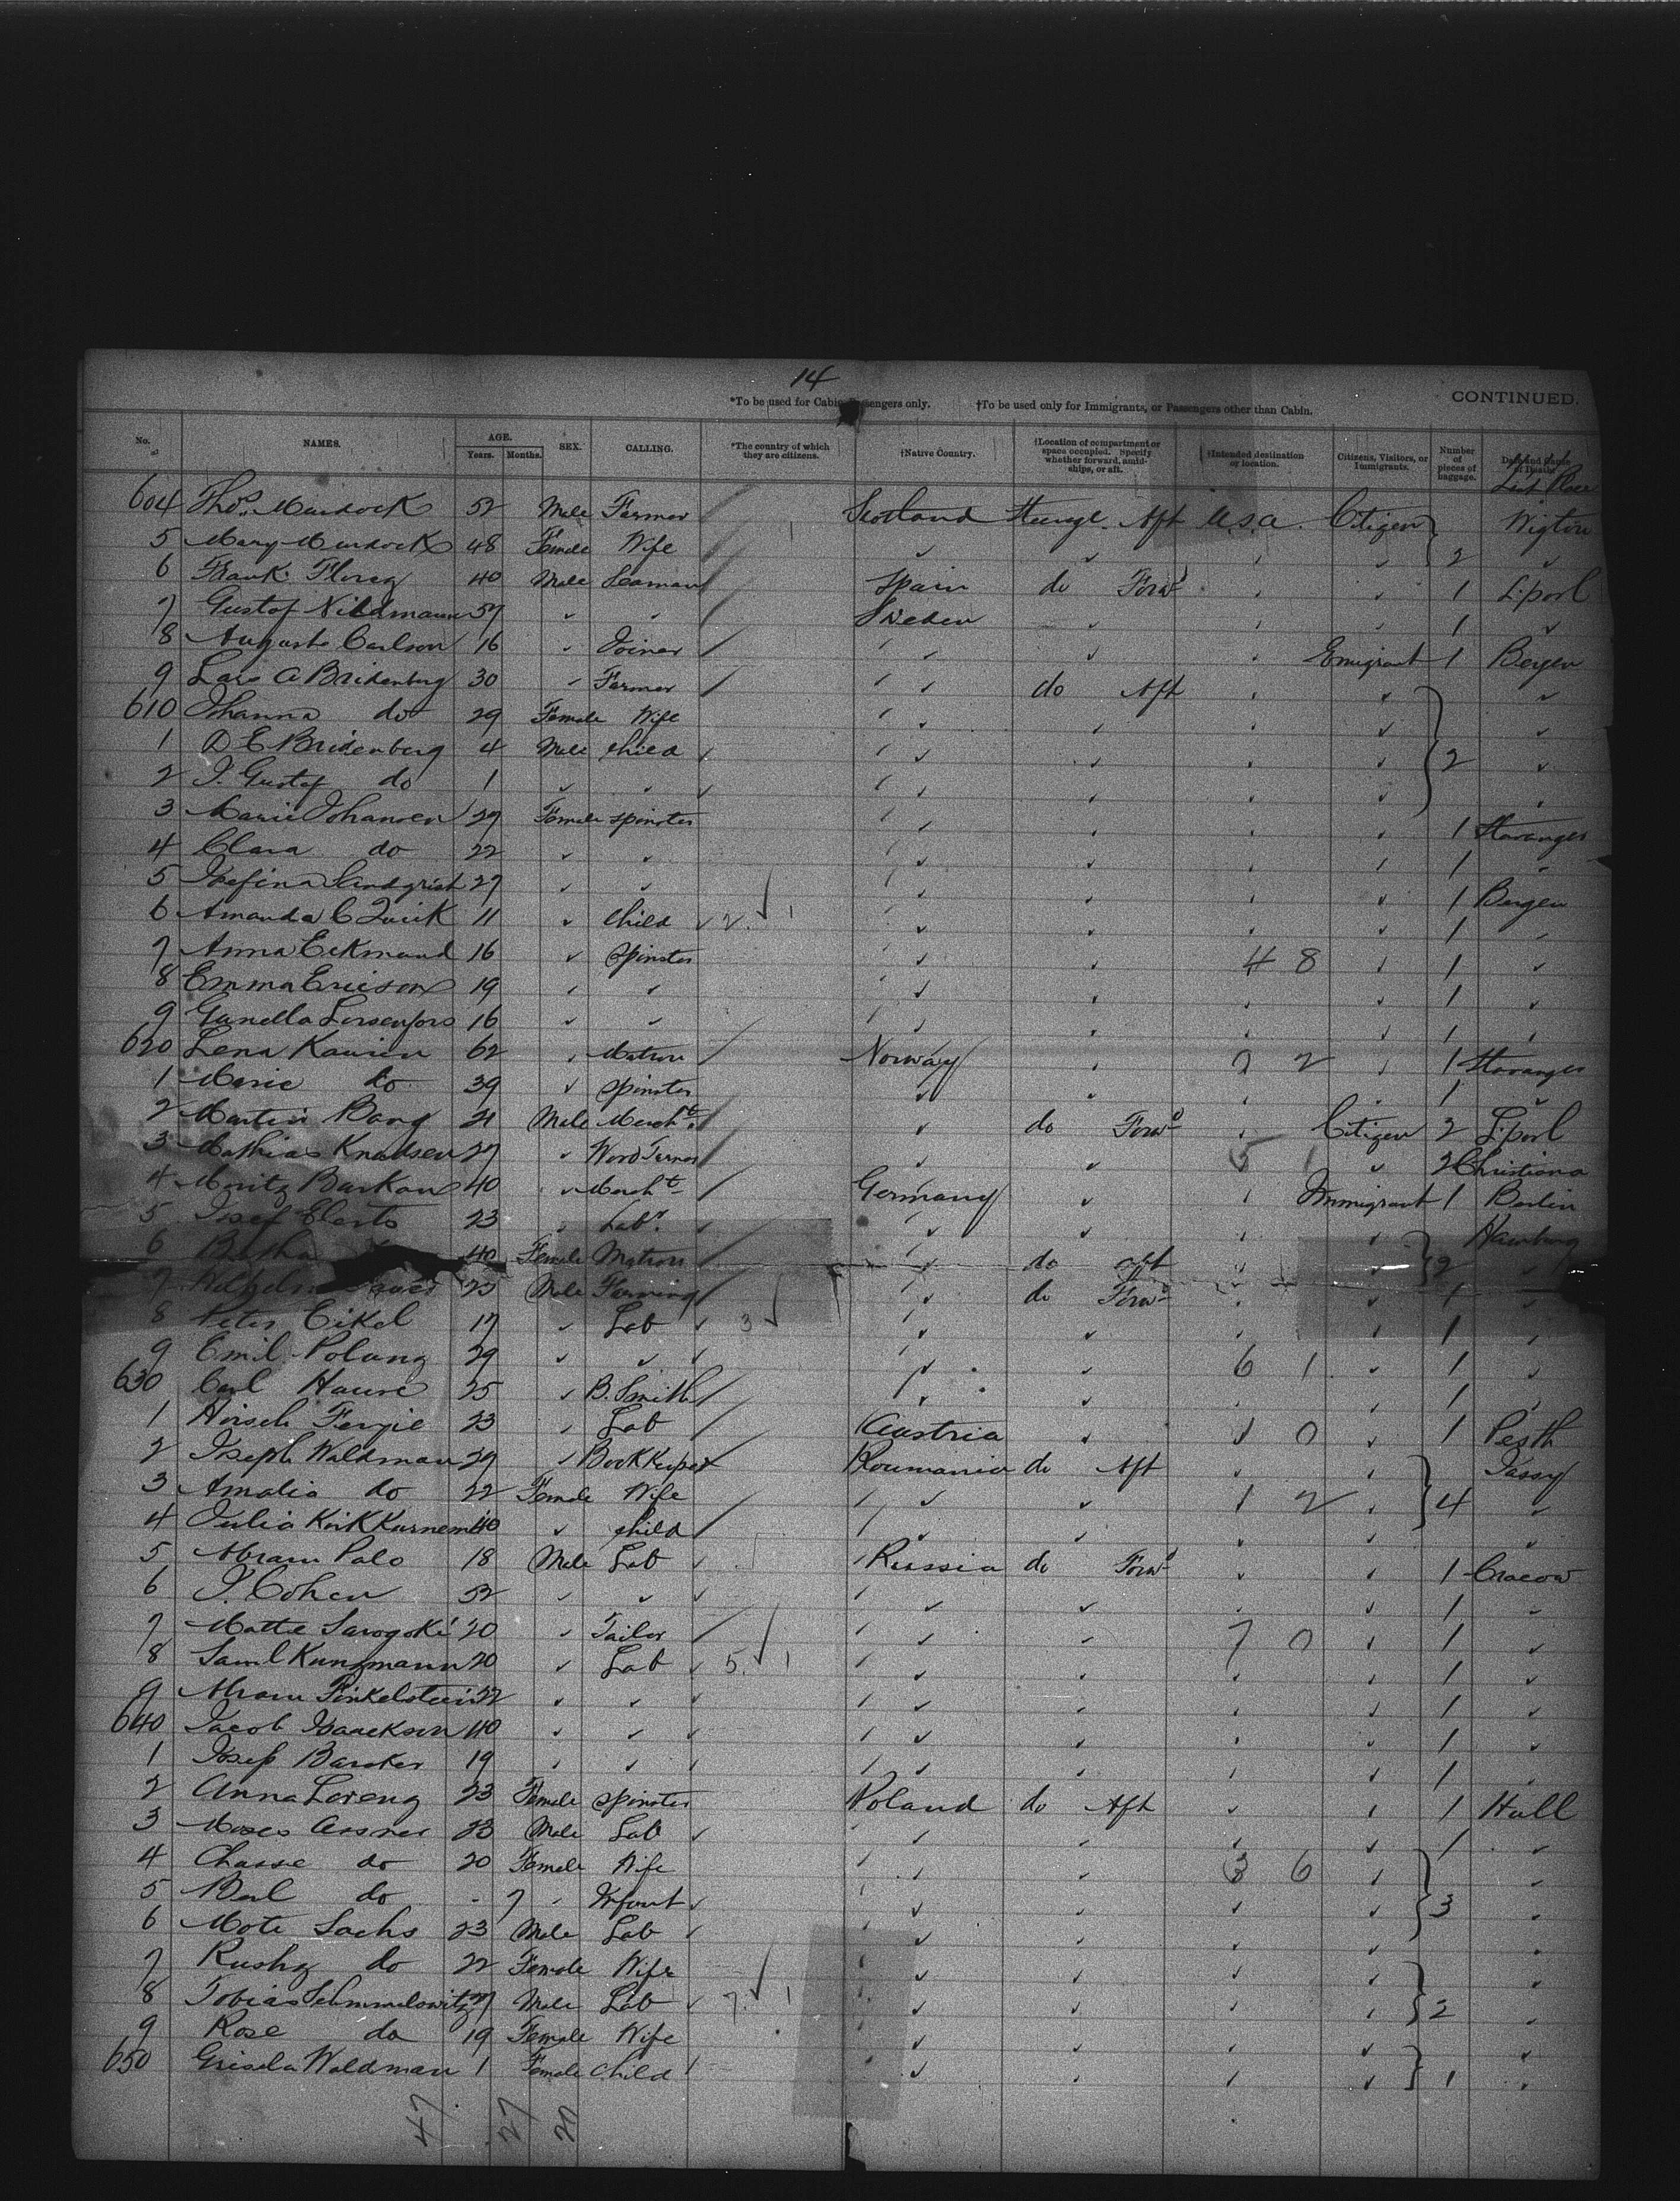 14
*To be used for Cabin Passengers only. †To be used only for Immigrants, or Passengers other than Cabin. CONTINUED.
No. NAMES. AGE. Years. Months. SEX. CALLING. *The country of which they are citizens. †Native Country. †Location of compartment or space occupied. Specify whether forward, amidships, or aft. †Intended destination or location. Citizens, Visitors, or Immigrants. Number of pieces of baggage. Date and Cause of Death. Last Place
604 Thos. Murdock 52 Male Farmer Scotland Steerge Aft U.S.A. Citizen Wigton
5 Mary Murdock 48 Female Wife ✓ ✓ ✓ 2 ✓
6 Frank Florey 40 Male Seaman Spain do Forwd 1 L.pool
7 Gustof Nildmann 57 Sweden ✓ 1 ✓
8 August Carlson 16 Joiner ✓ ✓ Emigrant 1 Bergen
9 Lars A Bridenberg 30 Farmer ✓ do Aft ✓ ✓
610 Johanna do 29 Female Wife ✓ ✓ ✓ ✓
1 D E Bridenberg 4 Male child ✓ ✓ ✓ 2 ✓
2 I. Gustof do 1 ✓ ✓ ✓ ✓
3 Marie Johansen 29 Female spinster ✓ ✓ 1 Stavanger
4 Clara do 22 ✓ ✓ ✓ ✓ 1
5 Josefina 27 ✓ ✓ ✓ ✓ 1 Bergen
6 Amanda C Quick 11 ✓ child 2 ✓ ✓ ✓ 1
7 Anna Eckmand 16 ✓ spinster ✓ ✓ 4 8 1 ✓
8 Emma Ericson 19 ✓ ✓ ✓ 1 ✓
9 Gunella 16 ✓ ✓ ✓ 1
620 Lena 62 Matron Norway 2 2 1 Stavanger
1 Marie do 39 ✓ spinster ✓ 1 ✓
2 Martin Bang 21 Male Mercht. ✓ do Forwd Citizen 2 L.pool
3 Mathias Knudsen 27 Wood Turner ✓ ✓ 5 1 ✓ 2 Christiana
4 Moritz Barkan 40 Mercht Germany ✓ Immigrant 1 Berlin
5 Josef 23 Labr. ✓ ✓ Hamburg
6 Bertha 40 Female Matron ✓ do aft ✓ 2 ✓
7 23 Male Farming ✓ do Forwd 1
8 Peter Eikel 17 ✓ Lab 3 ✓ ✓ ✓ 1
9 Emil Polung 29 ✓ ✓ ✓ ✓ 6 1 1
630 Carl 25 ✓ B. Smith ✓ ✓ 1
1 Hirsch 23 Lab Austria ✓ 1 0 1 Pesth
2 Joseph Waldman 29 BookKeeper Roumania do Aft Jassy
3 Amalia do 22 Female Wife ✓ ✓ 1 2 4 ✓
4 Julia ✓ child ✓ ✓ ✓
5 Abram Palo 18 Male Lab Russia do Forwd 1 Cracow
6 I. Cohen 52 ✓ ✓ ✓ ✓ 1
7 Motte 20 ✓ Tailor ✓ ✓ 7 0 1 ✓
8 Saml Kunzmann 20 ✓ Lab 5 ✓ ✓ ✓ 1 ✓
9 Abram Finkelstein 22 ✓ ✓ ✓ ✓ 1 ✓
640 Jacob Isaackson 40 ✓ ✓ ✓ ✓ 1 ✓
1 Josef Barsker 19 ✓ ✓ ✓ ✓ 1
2 Anna Loreng 23 Female spinster Poland do Aft ✓ 1 Hull
3 Moses 23 Male Lab ✓ ✓ 1
4 Chasse do 20 Female Wife ✓ ✓ 3 6 ✓
5 Berl do 7 Infant ✓ ✓ 3
6 Mote Sachs 23 Male Lab ✓ ✓
7 Rushy do 22 Female Wife ✓ ✓ ✓
8 Tobias Schmmelowitz 27 Male Lab 7 ✓ ✓ ✓ 2
9 Rose do 19 Female Wife ✓ ✓ ✓
650 Grisela Waldman 1 Female Child ✓ ✓ 1
47 27 20